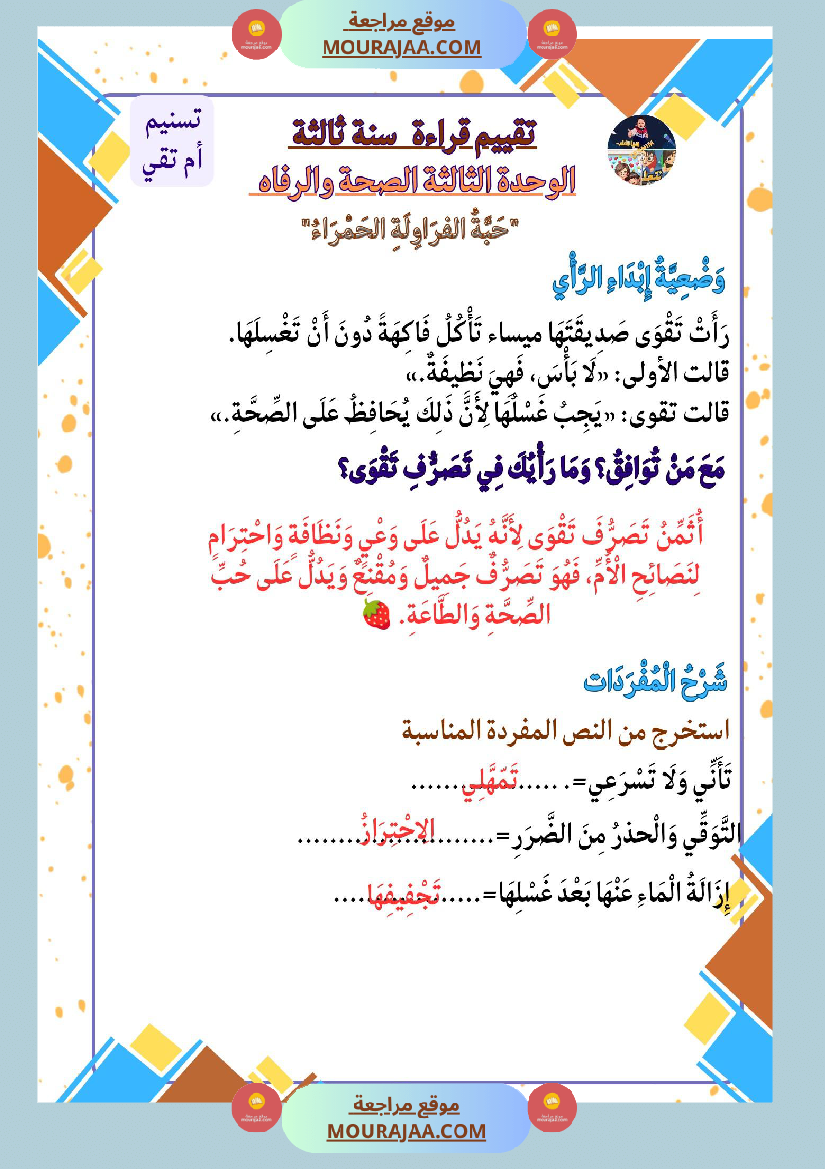 موقع مراجعة
MOURAJAA.COM
تسنيم
أم تقي
تقييم قراءة سنة ثالثة
الوحدة الثالثة الصحة والرفاه
"حَبَّةُ الفرَاوِلَةِ الحَمْرَاءُ"
وَضْعِيَّةُ إِبْدَاءِ الرَّأْيِ
رَأَتْ تَقْوَى صَدِيقَتَهَا ميساء تَأْكُلُ فَاكِهَةً دُونَ أَنْ تَغْسِلَهَا.
قالت الأولى: «لَا بَأْسَ، فَهِيَ نَظِيفَةٌ.»
قالت تقوى: «يَجِبُ غَسْلُهَا لِأَنَّ ذَلِكَ يُحَافِظُ عَلَى الصِّحَّةِ.»
مَعَ مَنْ تُوَافِقُ؟ وَمَا رَأْيُكَ فِي تَصَرُّفِ تَقْوَى؟
أُثَمِّنُ تَصَرُّفَ تَقْوَى لِأَنَّهُ يَدُلُّ عَلَى وَعْيٍ وَنَظَافَةٍ وَاحْتِرَامٍ
لِنَصَائِحِ الْأُمِّ، فَهُوَ تَصَرُّفٌ جَمِيلٌ وَمُقْنِعٌ وَيَدُلُّ عَلَى حُبِّ
الصِّحَّةِ وَالطَّاعَةِ. 🍓
شَرْحُ الْمُفْرَدَات
استخرج من النص المفردة المناسبة
تَأَنِّي وَلَا تَسْرَعِي=. .....تَمَهَّلِي.......
التَّوَقِّي وَالْحذرُ مِنَ الضَّرَرِ=.......الِاحْتِرَازُ........
إِزَالَةُ الْمَاءِ عَنْهَا بَعْدَ غَسْلِهَا=.....تَجْفِيفِهَا....
موقع مراجعة
MOURAJAA.COM